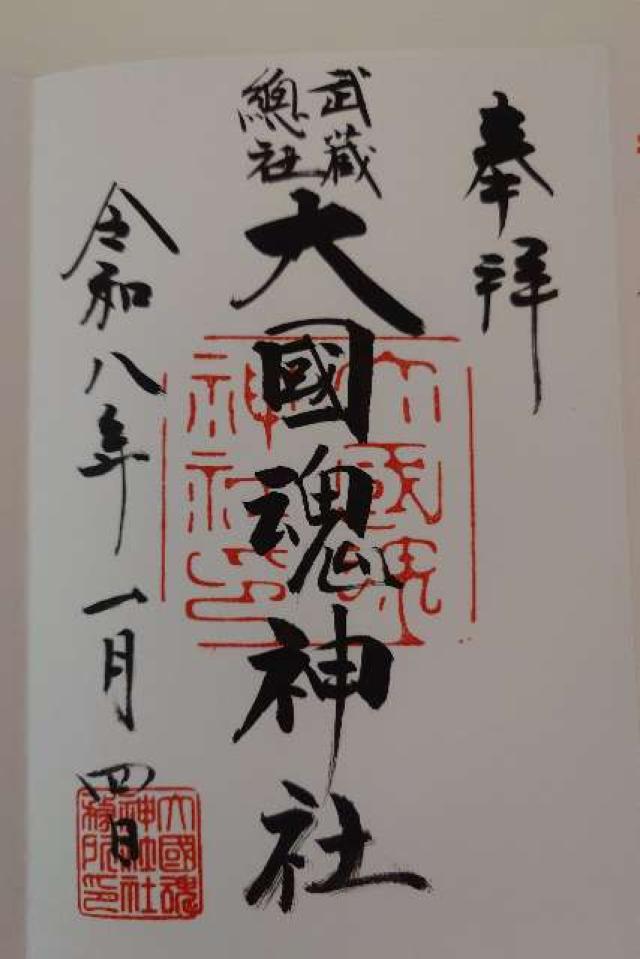 奉拝
武蔵
總社
大國魂神社
大國魂
神社印
令和八年一月四日
大國魂
神社社
務所印